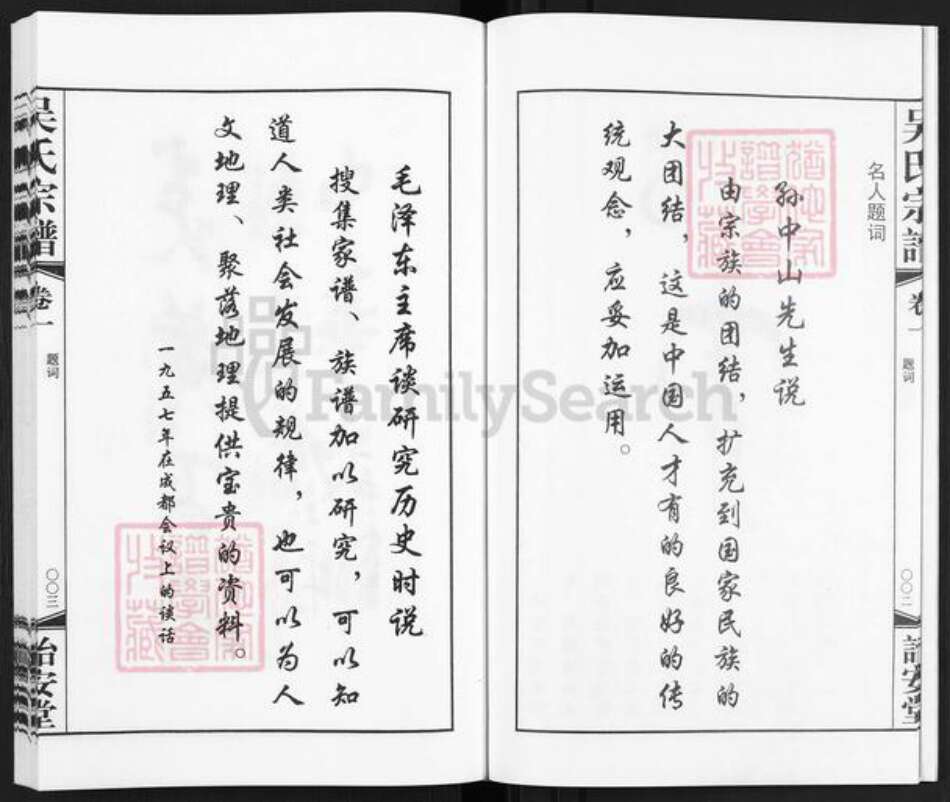 名人题词
孙中山先生说
由宗族的团结，扩充到国家民族的
大团结，这是中国人才有的良好的传
统观念，应妥加运用。
题词
〇〇二
毛泽东主席谈研究历史时说
搜集家谱、族谱加以研究，可以知
道人类社会发展的规律，也可以为人
文地理、聚落地理提供宝贵的资料。
一九五七年在成都会议上的谈话
吴氏宗谱
卷一
题词
〇〇三
FamilySearch